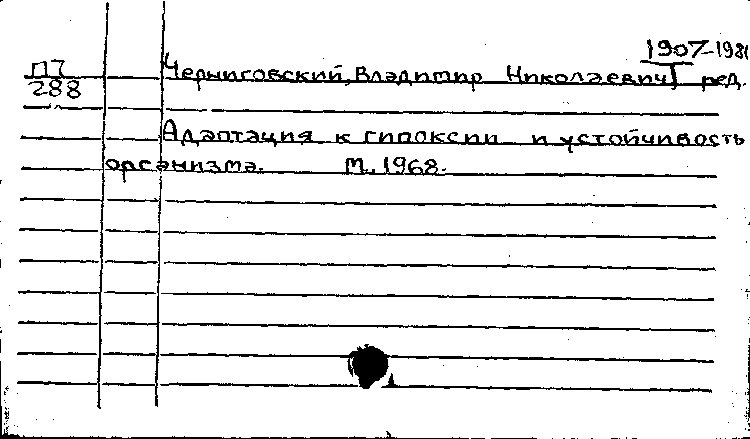 1907-198
П7 Черниговский, Владимир Николаевич, ред.
288
Адаптация к гипоксии и устойчивость
организма. М, 1968.